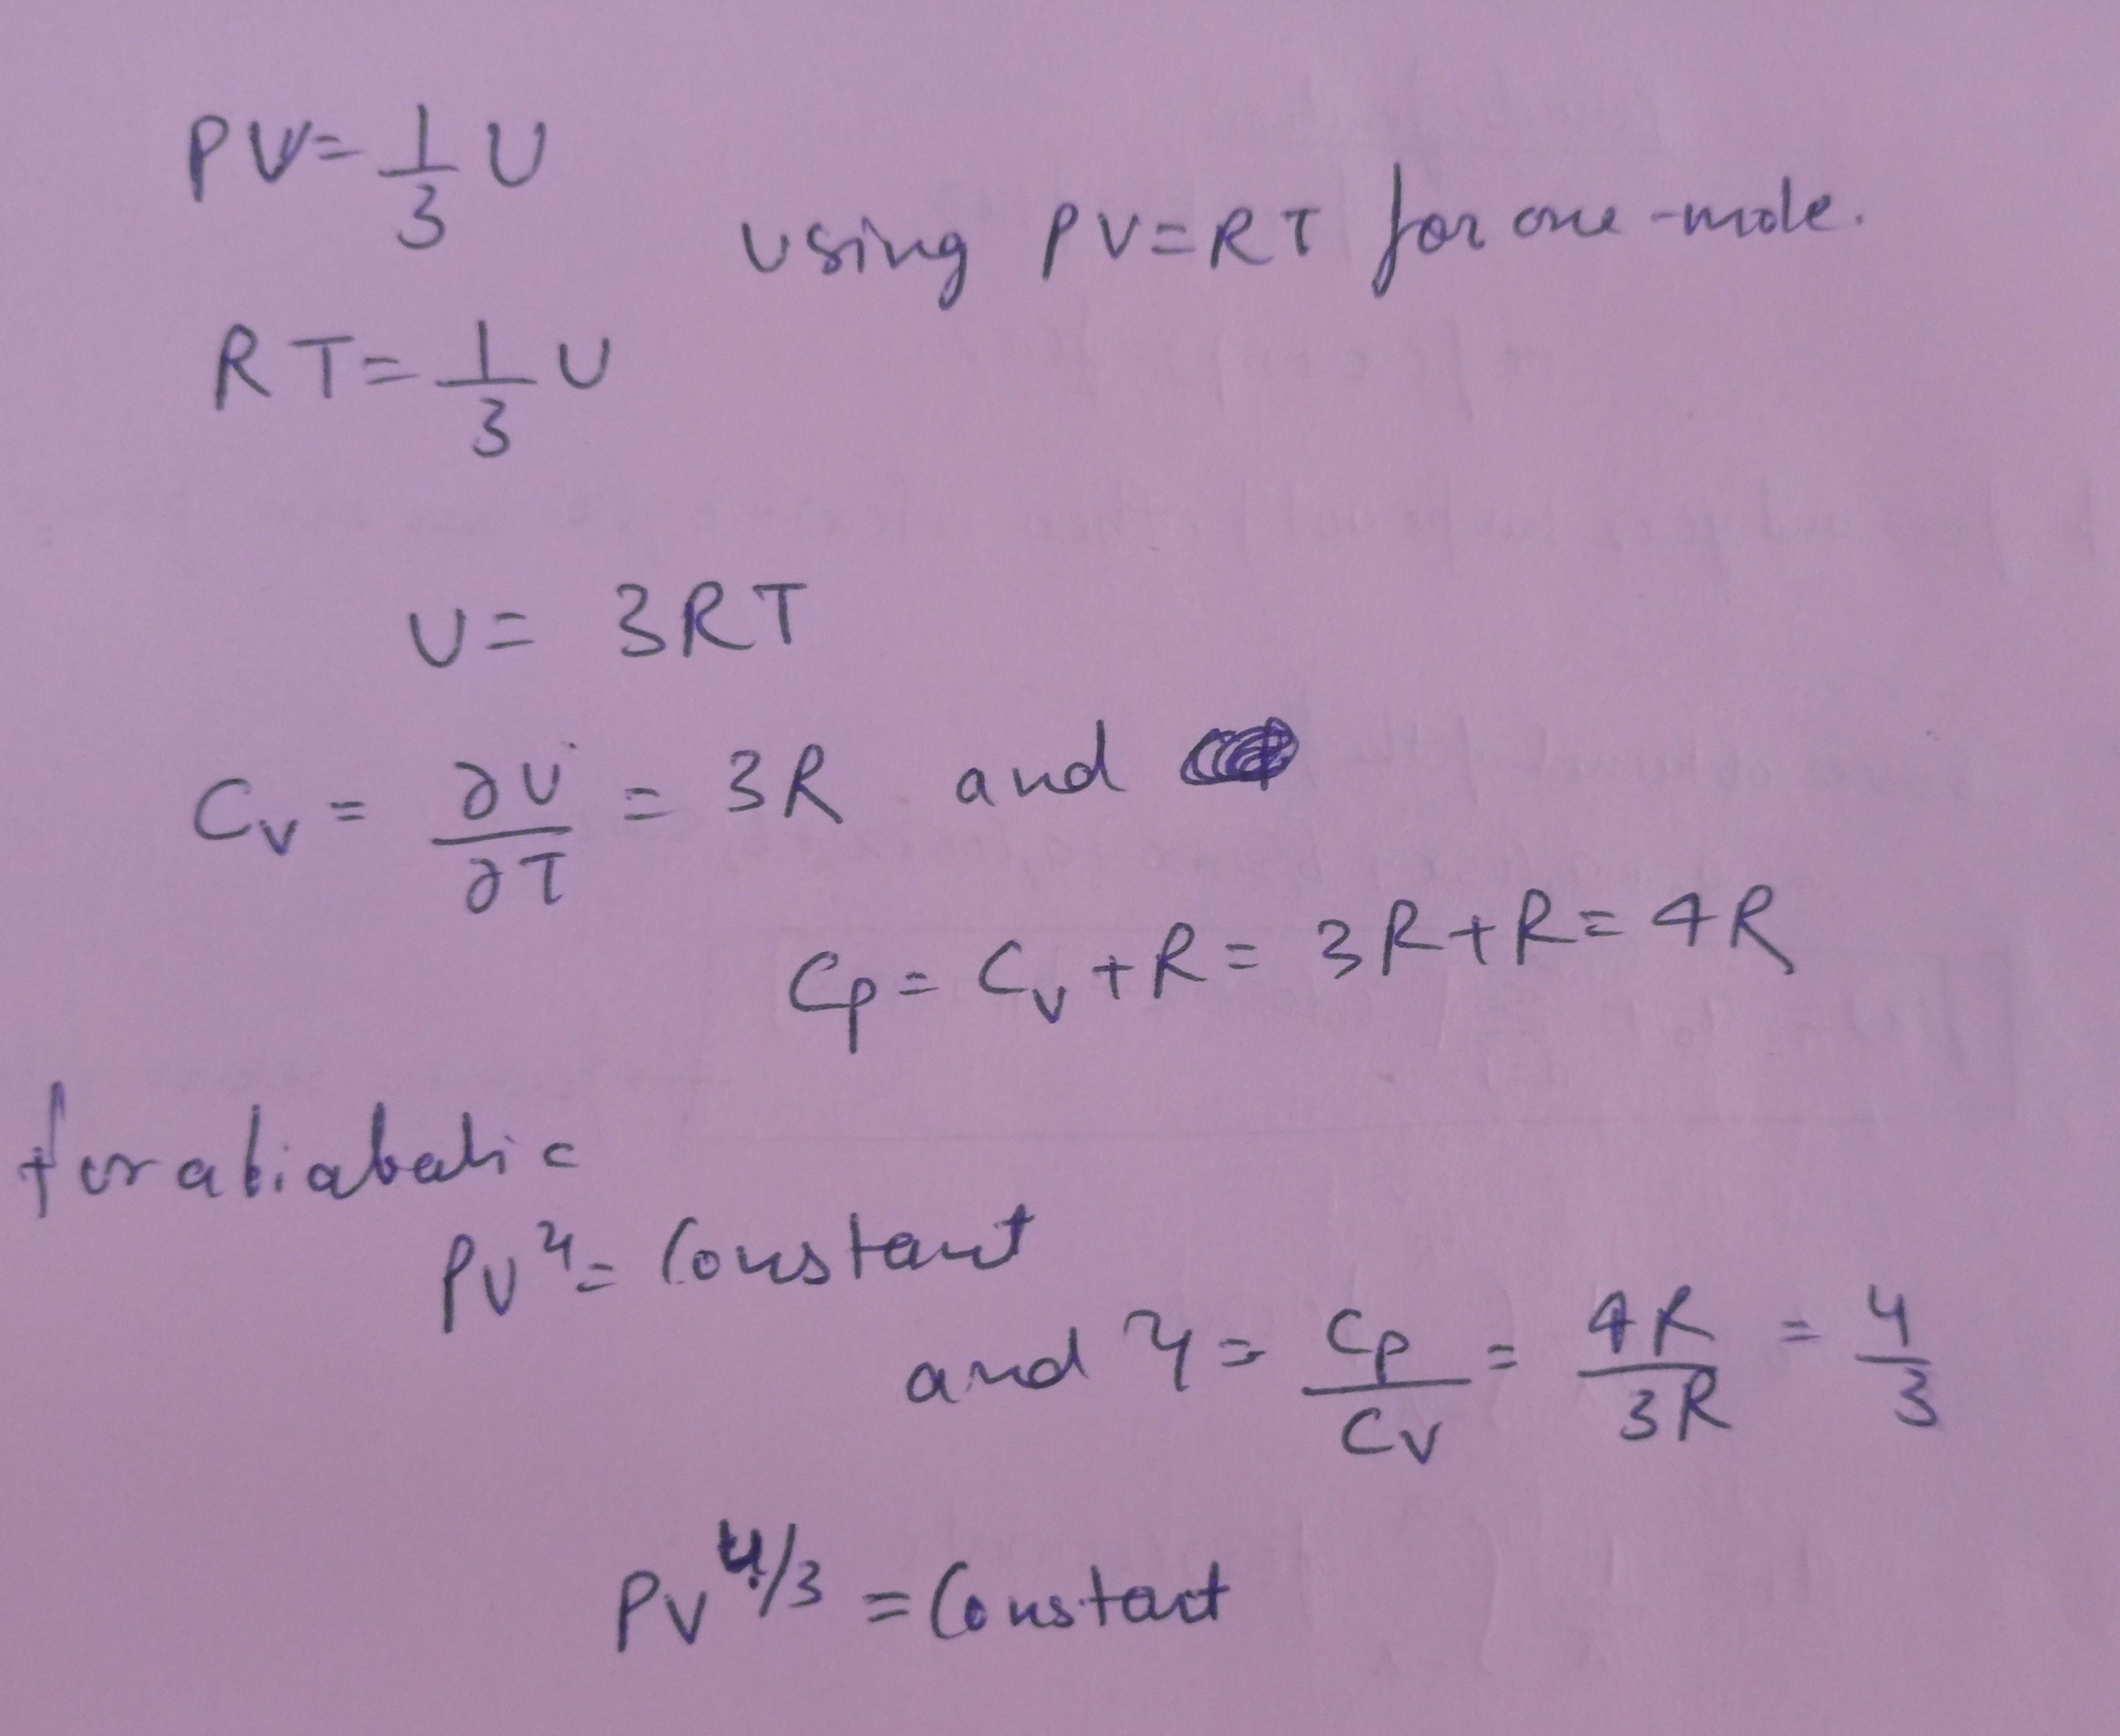 PV = 1/3 U
using PV = RT for one-mole.
RT = 1/3 U
U = 3RT
Cv = ∂U/∂T = 3R and
Cp = Cv + R = 3R + R = 4R
for abiabatic
PV^γ = Constant
and γ = Cp/Cv = 4R/3R = 4/3
PV^4/3 = Constant